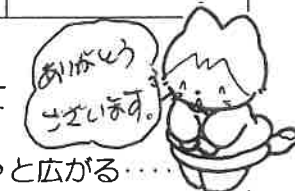 ありがとう
ございます。
と広がる……